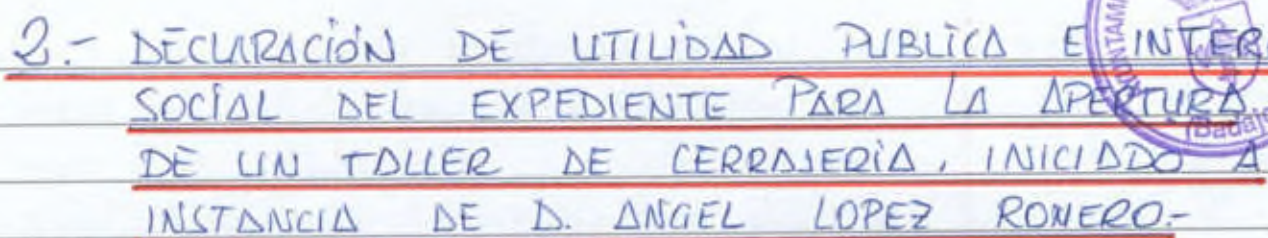 2.- DECLARACIÓN DE UTILIDAD PUBLICA E INTER
SOCIAL DEL EXPEDIENTE PARA LA APERTURA
DE UN TALLER DE CERRAJERÍA, INICIADO A
INSTANCIA DE D. ANGEL LOPEZ ROMERO.-